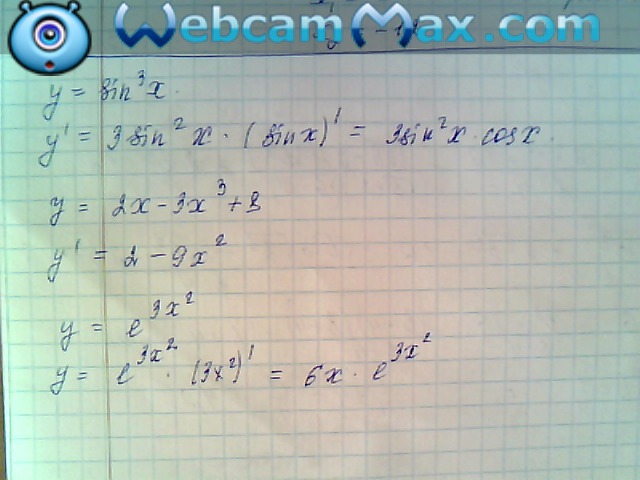 WebcamMax.com
y = sin³x.
y' = 3sin²x · (sinx)' = 3sin²x · cosx.
y = 2x - 3x³ +
y' = 2 - 9x²
y = e^3x²
y = e^3x² · (3x²)' = 6x · e^3x²